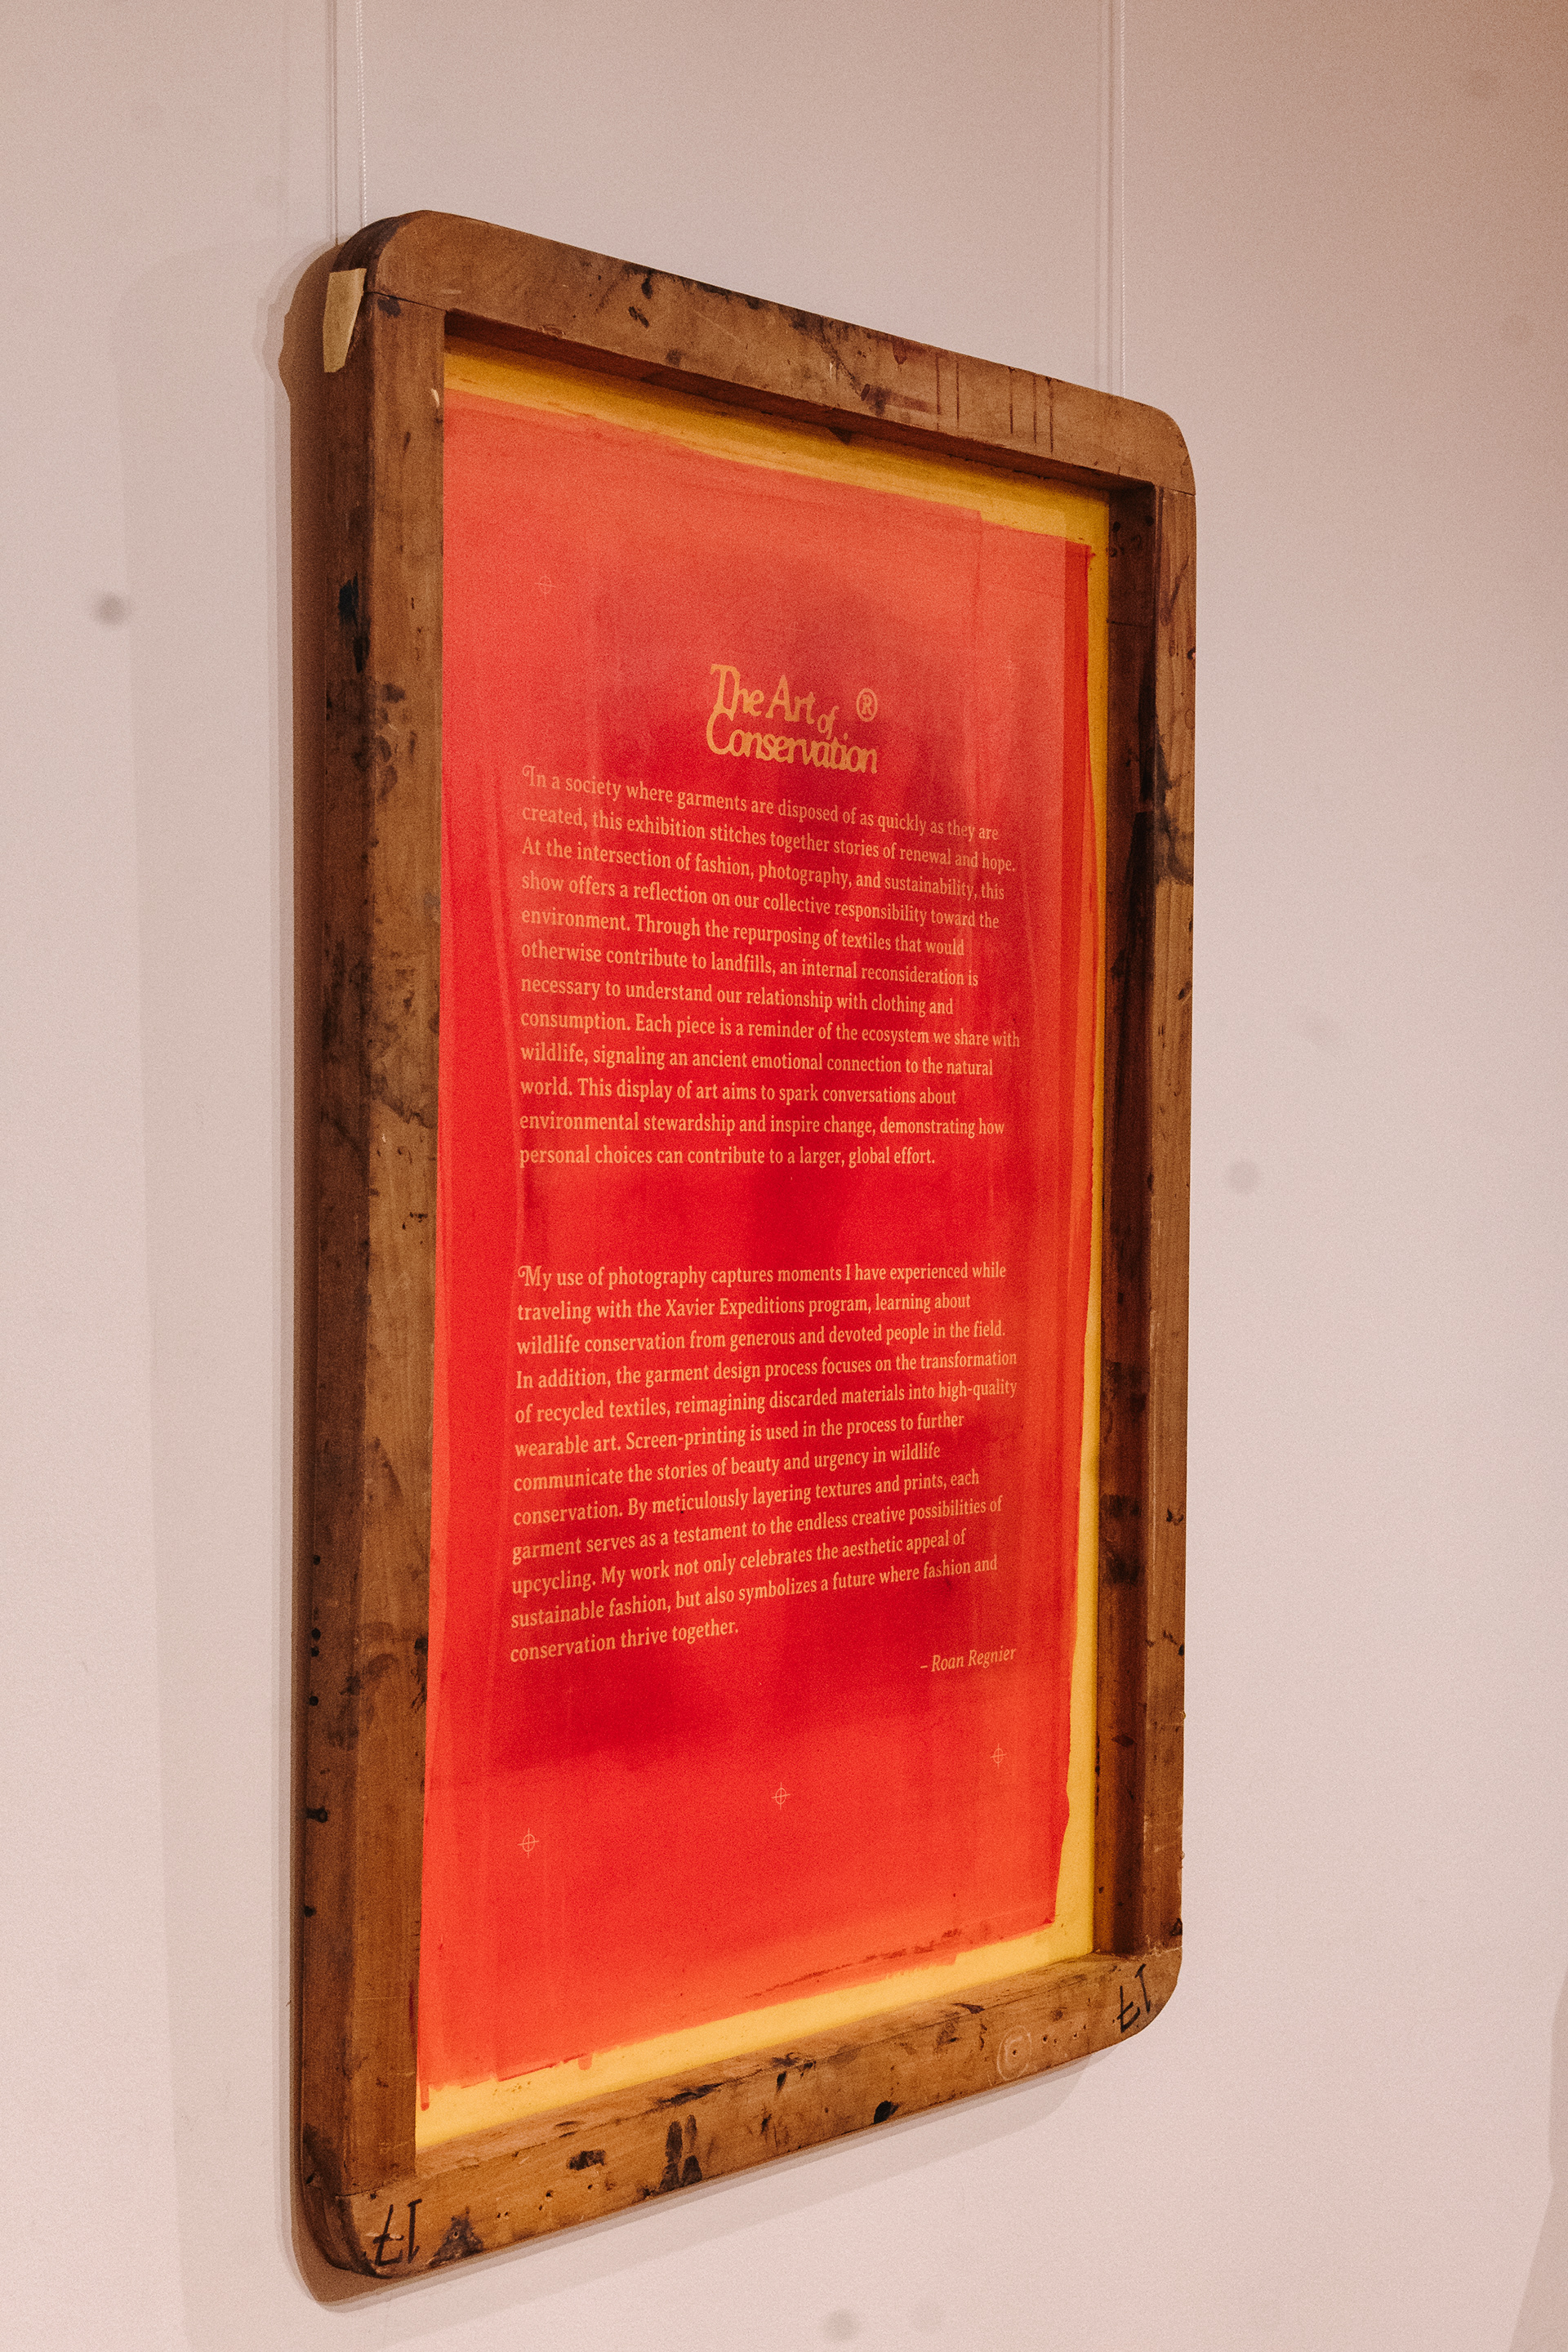 The Art of ®
Conservation
In a society where garments are disposed of as quickly as they are
created, this exhibition stitches together stories of renewal and hope.
At the intersection of fashion, photography, and sustainability, this
show offers a reflection on our collective responsibility toward the
environment. Through the repurposing of textiles that would
otherwise contribute to landfills, an internal reconsideration is
necessary to understand our relationship with clothing and
consumption. Each piece is a reminder of the ecosystem we share with
wildlife, signaling an ancient emotional connection to the natural
world. This display of art aims to spark conversations about
environmental stewardship and inspire change, demonstrating how
personal choices can contribute to a larger, global effort.
My use of photography captures moments I have experienced while
traveling with the Xavier Expeditions program, learning about
wildlife conservation from generous and devoted people in the field.
In addition, the garment design process focuses on the transformation
of recycled textiles, reimagining discarded materials into high-quality
wearable art. Screen-printing is used in the process to further
communicate the stories of beauty and urgency in wildlife
conservation. By meticulously layering textures and prints, each
garment serves as a testament to the endless creative possibilities of
upcycling. My work not only celebrates the aesthetic appeal of
sustainable fashion, but also symbolizes a future where fashion and
conservation thrive together.
– Roan Regnier
17
17